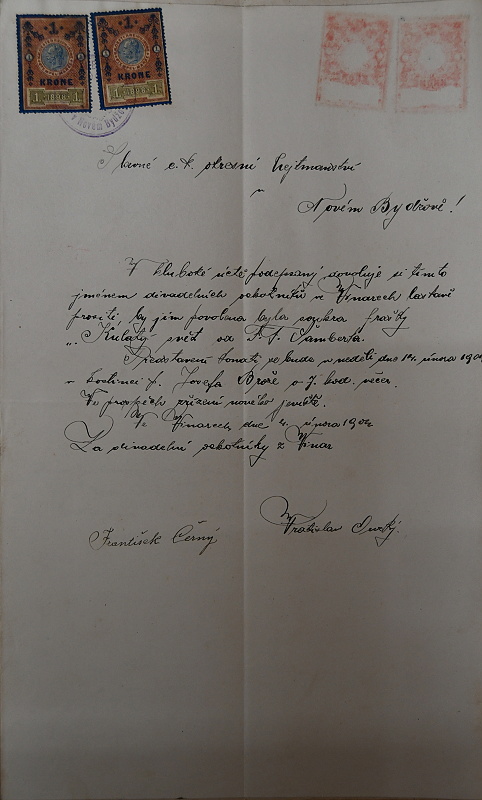 1 1
KRONE KRONE
1 1898 1 1 1898 1
v Novém Bydžo
Slavné c. k. okresní hejtmanství
v
Novém Bydžově!
V hluboké úctě podepsaný dovoluje si tímto
jménem divadelních ochotníků v Vinarech laskavě
prositi by jim povolena byla soukra frašky
"Kulatý" svět od F. F. Šamberka.
Představení konati se bude v neděli dne 14. února 190
v hostinci p. Josefa Brože o 7. hod. večer.
Ve prospěch zřízení nového jeviště.
Ve Vinarech dne 4. února 1904
Za divadelní ochotníky z Vinar
Vratislav
František Černý